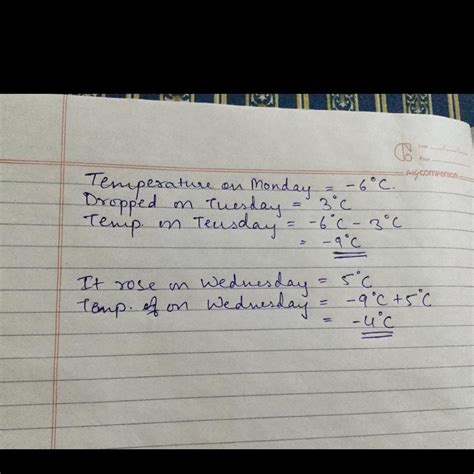 My companion
Temperature on Monday = -6°C.
Dropped on Tuesday = 3°C
Temp. on Teusday = -6°C - 3°C
= -9°C
It rose on Wednesday = 5°C
Temp. of on Wednesday = -9°C + 5°C
= -4°C